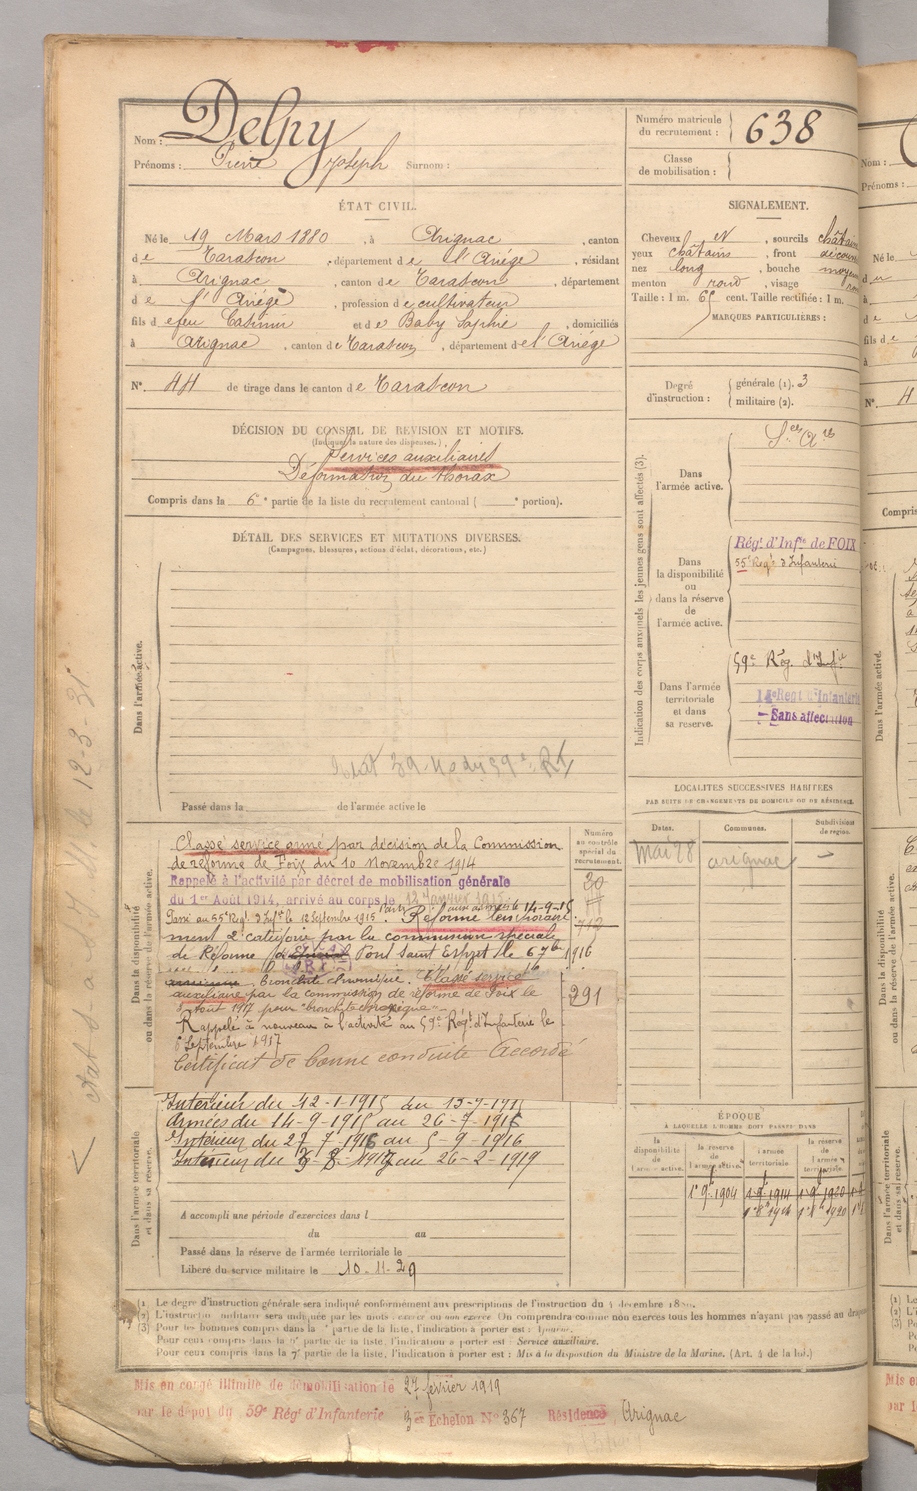 Nom : Delpy
Prénoms : Pierre Joseph Surnom :
Numéro matricule du recrutement : 638
Classe de mobilisation :
ÉTAT CIVIL.
Né le 19 Mars 1880, à Arignac, canton
de Tarascon, département de l'Ariége, résidant
à Arignac, canton de Tarascon, département
de l'Ariége, profession de cultivateur
fils de feu Casimir et de Baby Sophie, domiciliés
à Arignac, canton de Tarascon, département de l'Ariége
N° 44 de tirage dans le canton de Tarascon
DÉCISION DU CONSEIL DE REVISION ET MOTIFS.
(Indiquer la nature des dispenses.)
Services auxiliaires
Déformation du thorax
Compris dans la 6e partie de la liste du recrutement cantonal ( e portion).
SIGNALEMENT.
Cheveux et, sourcils châtains
yeux châtains, front découvert
nez long, bouche moyenne
menton rond, visage
Taille : 1 m. 65 cent. Taille rectifiée : 1 m.
MARQUES PARTICULIÈRES :
Degré d'instruction :
générale (1). 3
militaire (2).
DÉTAIL DES SERVICES ET MUTATIONS DIVERSES.
(Campagnes, blessures, actions d'éclat, décorations, etc.)
Dans l'armée active.
Passé dans la de l'armée active le
Indication des corps auxquels les jeunes gens sont affectés (3).
Dans l'armée active.
Dans la disponibilité ou dans la réserve de l'armée active.
Régt d'Infie de FOIX
55e Regt d'Infanterie
Dans l'armée territoriale et dans sa réserve.
59e Rég. d'Infie
Régt d'Infanterie
Sans affectation
LOCALITÉS SUCCESSIVES HABITÉES
PAR SUITE DE CHANGEMENTS DE DOMICILE OU DE RÉSIDENCE.
Dates. Communes. Subdivision de region.
Mai 28 arignac
Dans la disponibilité ou dans la réserve de l'armée active.
Numéro au contrôle spécial du recrutement.
Classé service armé par décision de la Commission
de réforme de Foix du 10 Novembre 1914
Rappelé à l'activité par décret de mobilisation générale
du 1er Août 1914, arrivé au corps le 12 Janvier 1915.
Passé au 55e Regt d'Infie le 12 Septembre 1915. Parti aux armées le 14-9-15
Réformé temporaire
ment 2e catégorie par la commission spéciale
de Réforme Pont Saint Esprit le 6 7bre 1916
bronchite chronique. Classé service
auxiliaire par la commission de réforme de Foix le
Août 1917 pour "bronchite chronique"
Rappelé à nouveau à l'activité au 59e Régt d'Infanterie le
Septembre 1917
Certificat de bonne conduite Accordé
30
712
291
Dans l'armée territoriale et dans sa réserve.
Intérieur du 12-1-1915 au 13-9-1915
Armées du 14-9-1915 au 26-7-1916
Intérieur du 27-7-1916 au 5-9-1916
Intérieur du 1917 au 26-2-1919
A accompli une période d'exercices dans l
du au
Passé dans la réserve de l'armée territoriale le
Libéré du service militaire le 10-11-29
ÉPOQUE
À LAQUELLE L'HOMME DOIT PASSER DANS
la disponibilité de l'armée active.
la réserve de l'armée active.
l'armée territoriale.
la réserve de l'armée territoriale.
1er 9bre 1904
(1) Le degré d'instruction générale sera indiqué conformément aux prescriptions de l'instruction du 4 décembre
(2) L'instruction militaire sera indiquée par les mots : exercé ou non exercé. On comprendra comme non exercés tous les hommes n'ayant pas passé au
(3) Pour les hommes compris dans la partie de la liste, l'indication à porter est :
Pour ceux compris dans la partie de la liste, l'indication à porter est : Service auxiliaire.
Pour ceux compris dans la 7e partie de la liste, l'indication à porter est : Mis à la disposition du Ministre de la Marine. (Art. 4 de la loi.)
Mis en congé illimité de démobilisation le 27 février 1919
par le dépôt du 59e Régt d'Infanterie 3e Echelon N° 367 Résidence Arignac